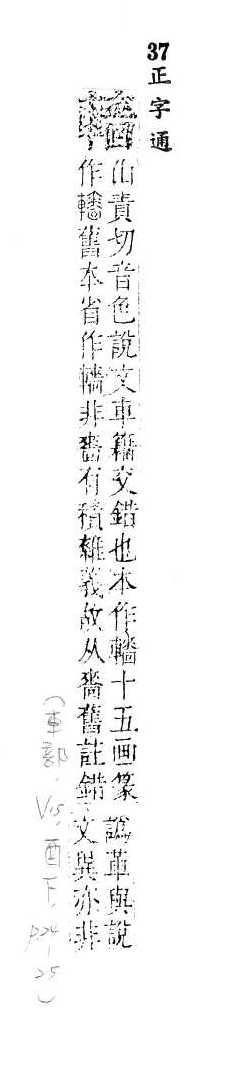 37 正字通
山責切音色說文車籍交錯也本作轖十五画篆譌革與說
作轖舊本省作轖非嗇有積雜義故从嗇舊註錯文異亦非
(車部.V15,酉下,P.24-25)